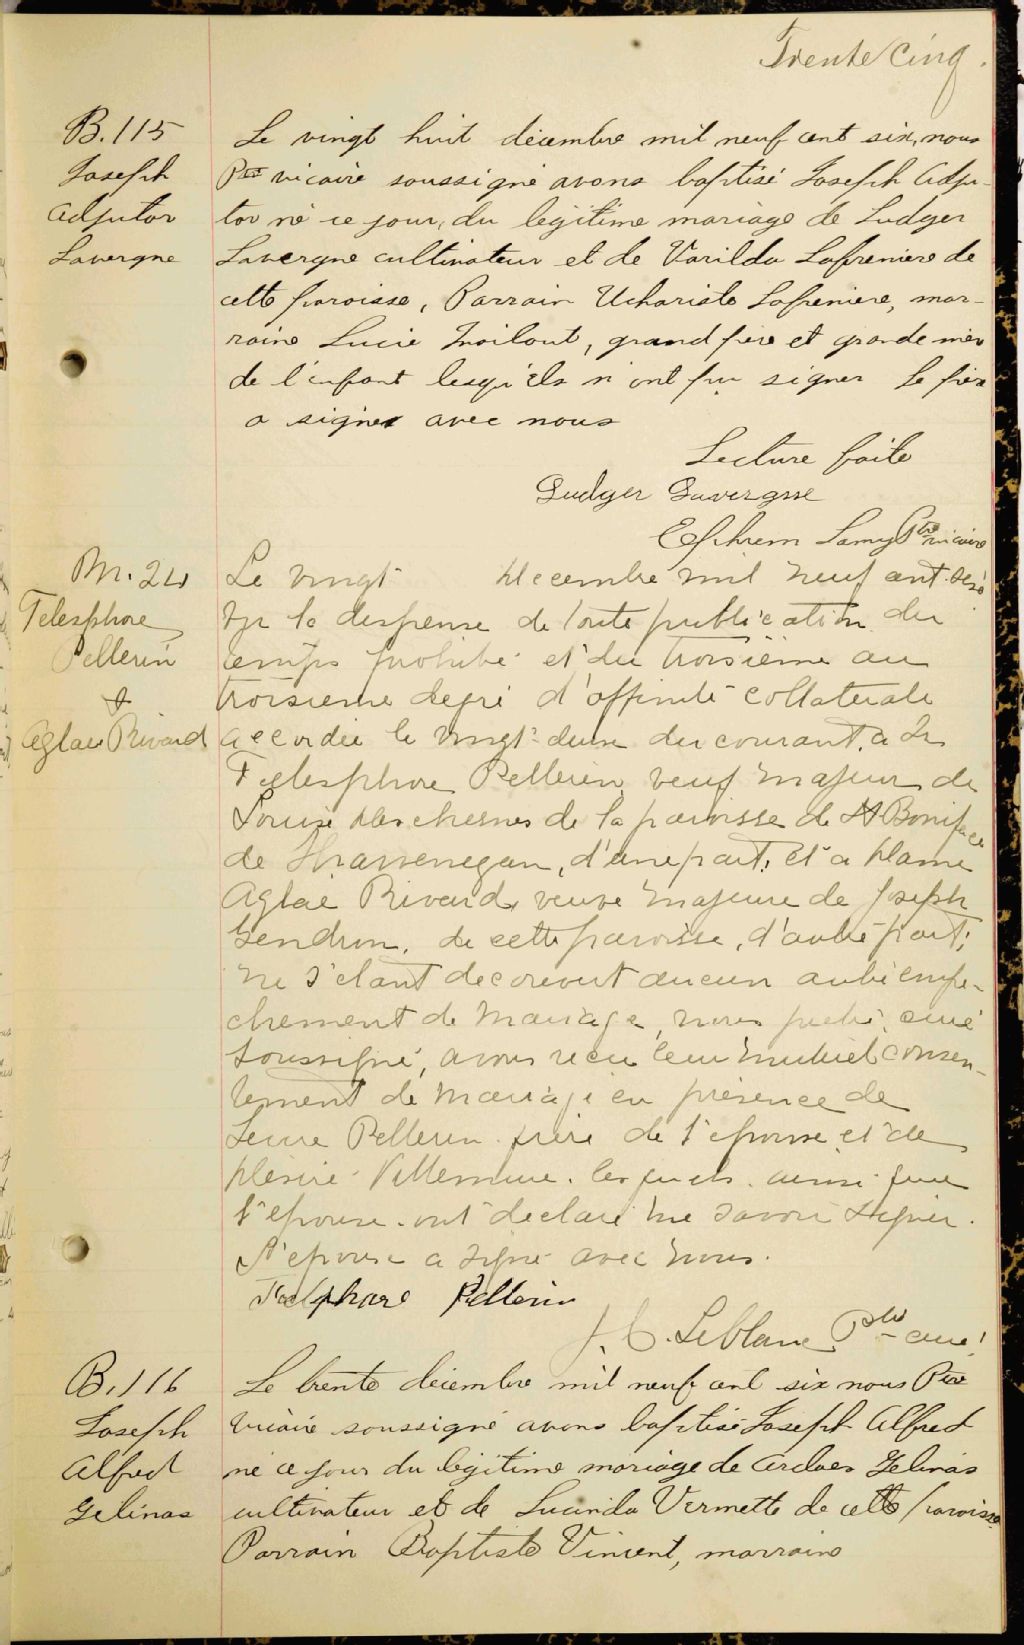 Trente Cinq.
B.115
Joseph
Adjutor
Lavergne
Le vingt huit décembre mil neuf cent six, nous
Ptre vicaire soussigné avons baptisé Joseph Adju-
tor né ce jour, du légitime mariage de Ludger
Lavergne cultivateur et de Varilda Lafreniere de
cette paroisse, Parrain Uchariste Lafreniere, mar-
raine Lucie, grand père et grande mère
de l'enfant lesqu'els n'ont pu signer Le père
a signer avec nous
Lecture faite
Ludger Lavergne
Ephrem Lamy Ptre vicaire
M. 24
Telesphore
Pellerin
&
Aglaé Rivard
Le vingt decembre mil neuf cent
Vu la dispense de toute publication du
temps prohibé et du troisième au
troisieme degré d'affinité collaterale
accordée le vingt-deux du courant, à
Telesphore Pellerin, veuf majeur de
Louise Deschesnes de la paroisse de St Boniface
de Shawenegan, d'une part; et a Dame
Aglaé Rivard, veuve majeure de Joseph
Gendron, de cette paroisse, d'autre part;
ne s'étant decouvert aucun autre empe-
chement de mariage, nous prêtre, curé
soussigné, avons reçu leur mutuel consen-
tement de mariage en présence de
Pellerin frère de l'epoux et de
Désiré Villemure. lesquels ainsi que
l'epouse ont declaré ne savoir signer.
L'epoux a signé avec nous.
Telsphore Pellerin
J. C. Leblanc Ptre curé
B.116
Joseph
Alfred
Gelinas
Le trente décembre mil neuf cent six nous Ptre
vicaire soussigné avons baptisé Joseph Alfred
né ce jour du légitime mariage de Gelinas
cultivateur et de Lucinda Vermette de cette paroisse
Parrain Baptiste Vincent, marraine